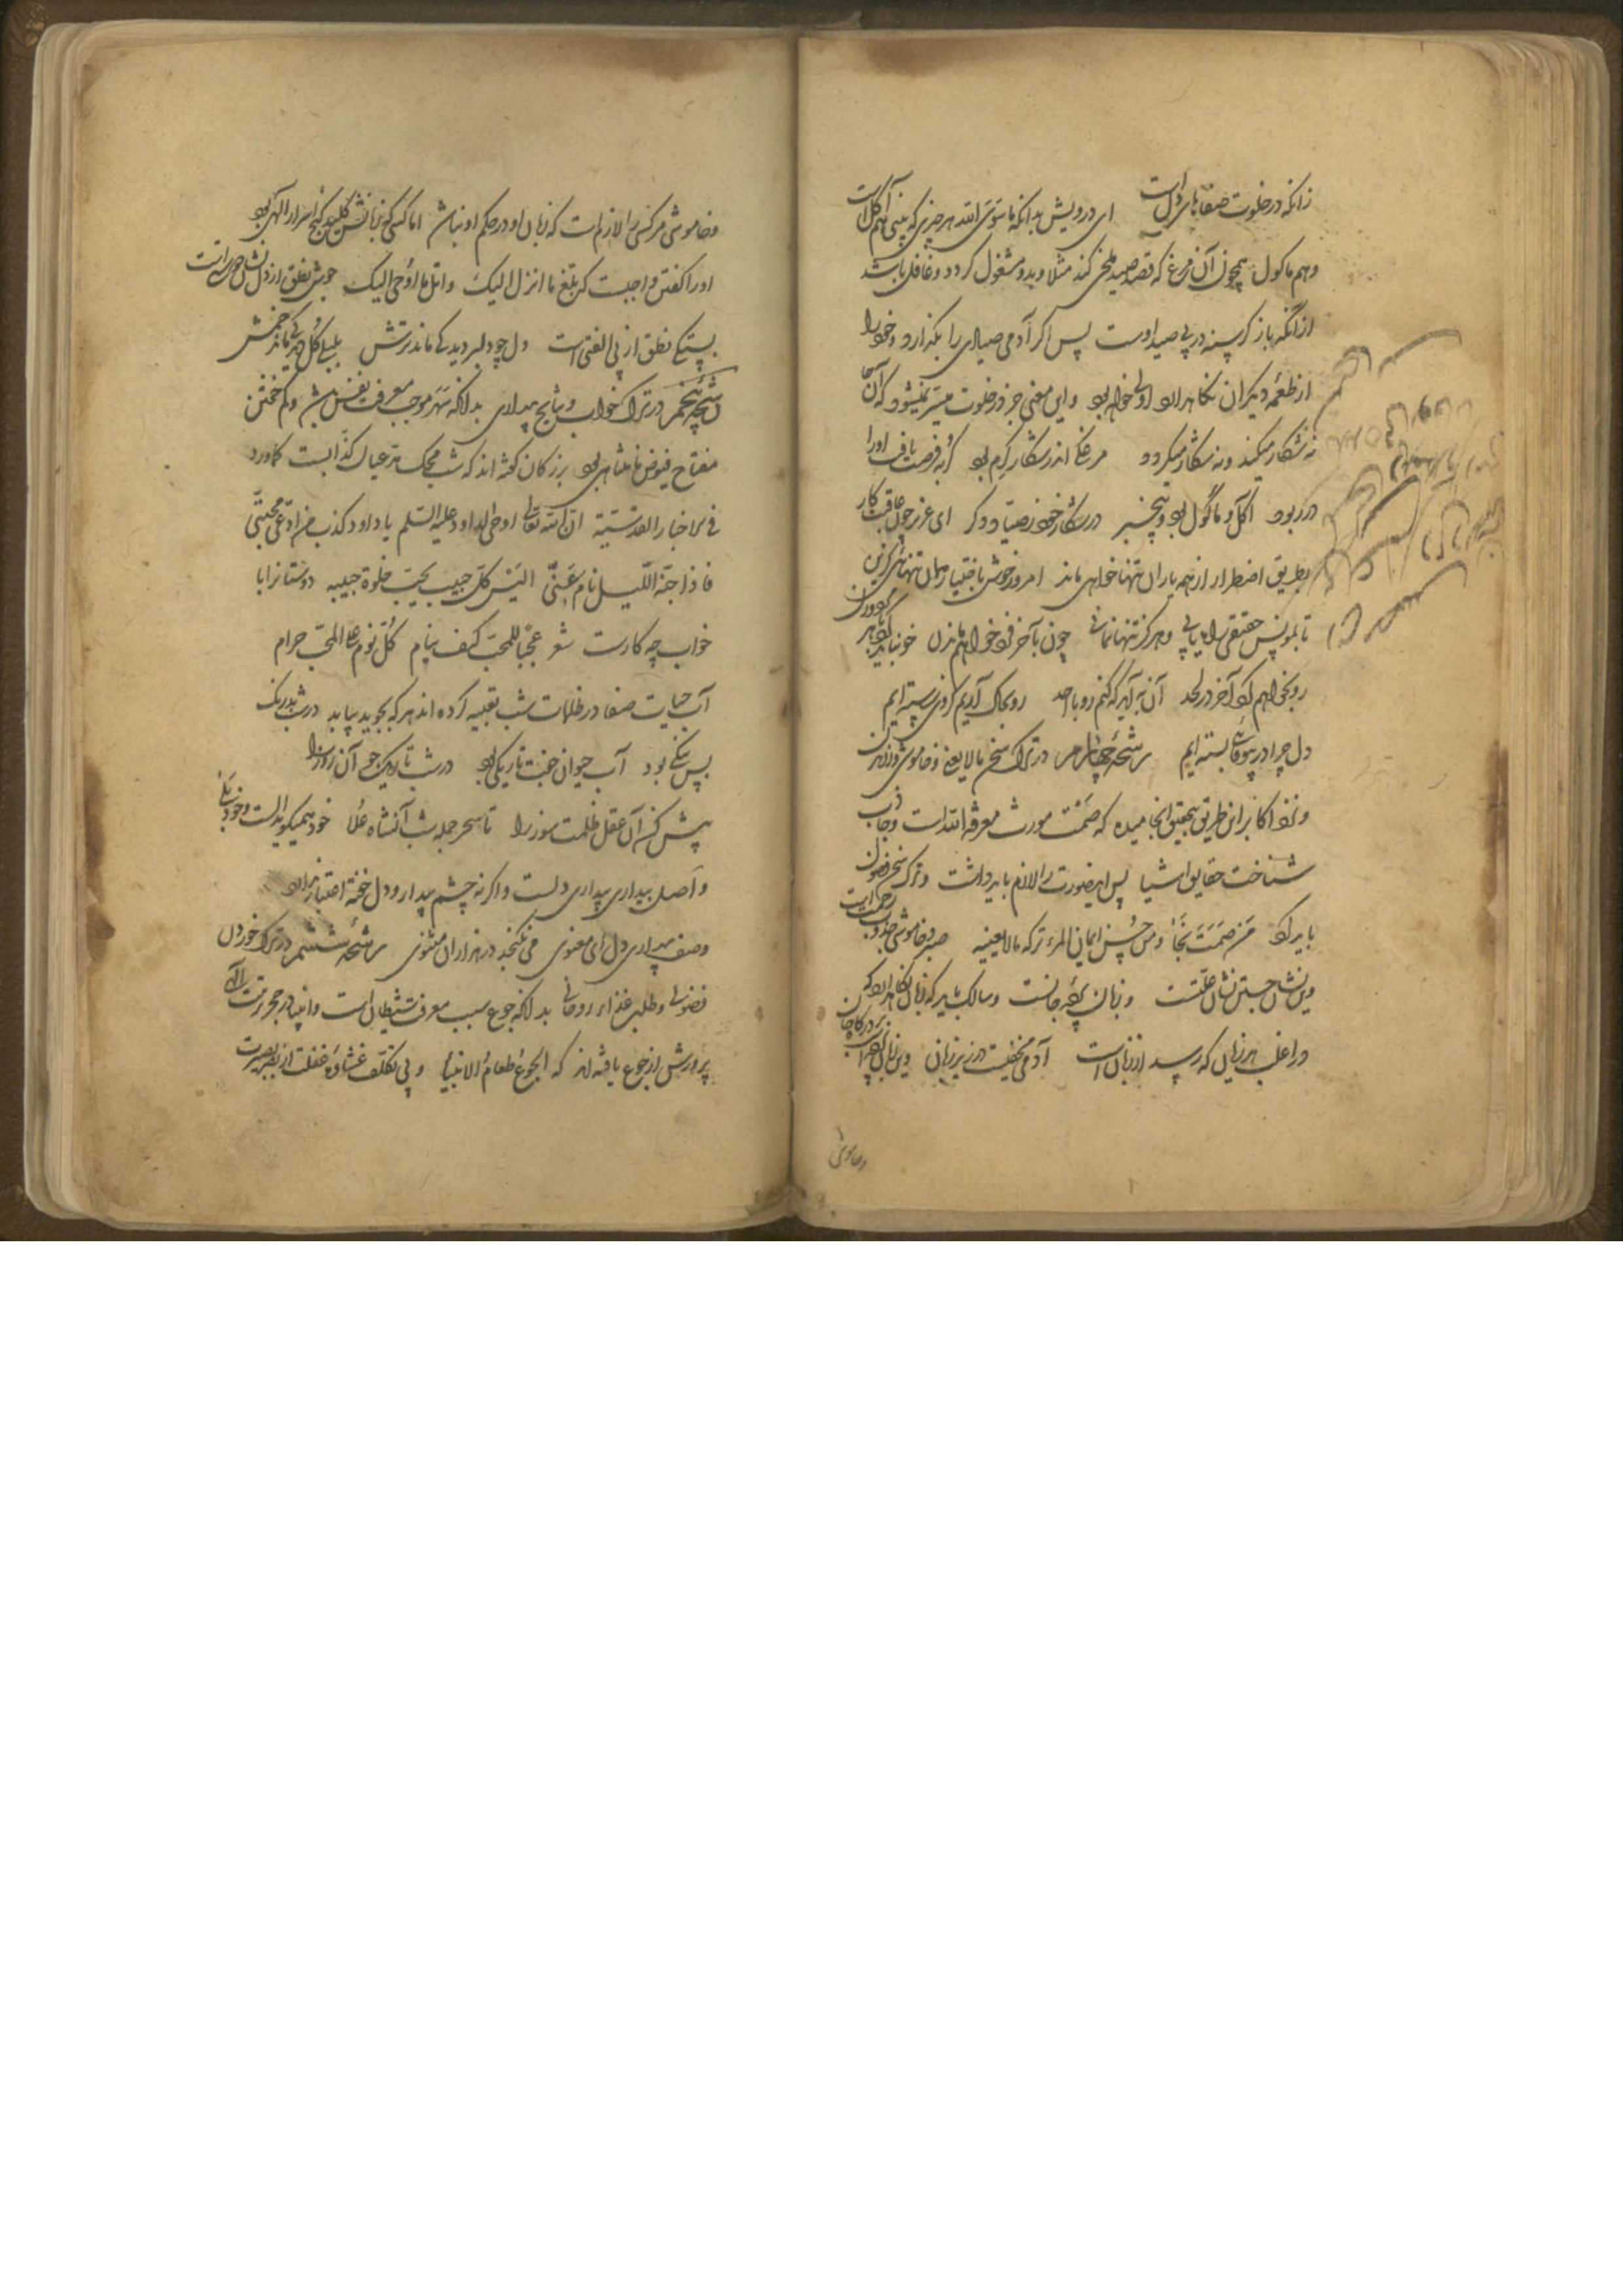 زانکه در خلوت صفاهای دلست ای درویش بدانکه ماسوی الله هر چیزی که بینی هم آکل است
و هم ماکول همچون آن مرغ که قصد صید ملخی کند مثلا و بدو مشغول کردد و غافل باشد
از آنکه باز کرسنه در پی صید اوست پس اکر آدمی صیادی را بگذارد و خود را
از طعمه دیگران نگاهدارد اولی خواهد بود و این معنی جز در خلوت میسر نمیشود که آنجا
نه شکار میکند و نه شکار میکردد مرغکی اندر شکار کرم بود کربه فرصت یافت او را
در ربود آکل و ماکول بود و بیخبر در شکار خود ز صیاد دکر ای عزیز چون عاقبت کار
بطریق اضطرار از همه یاران تنها خواهی ماند امروز خوش باختیار همان تنهائی کزین
تا بمونس حقیقی راه یابی و هرکز تنها نمانی چون بآخر فرد خواهم ماندن خو نباید کرد با هر مرد و زن
رو بخواهم کرد آخر در لحد آن به آید که کنم رو با احد رو بخاک آریم کز وی رسته ایم
دل چرا در بیوفایان بسته ایم رشحه چهارم در ترک سخن مالایعنی و خاموشی
و نزد اکابر این طریق بتحقیق انجامیده که صمت مورث معرفة الله است و جاذب
شناخت حقایق اشیا پس این صورت را لازم باید داشت و ترک سخن فضول
باید کرد من صمت نجا و من حسن ایمان المرء ترکه مالایعنیه صبر و خاموشی جذوب رحمت است
وین نشان جستن نشان علتست و زبان پرده جانست و سالک باید که زبان نگاهدارد که
در اغلب هر زیان که رسد از زبان است آدمی مخفیست در زیر زبان وین زبان پرده است بر درگاه جان
و خاموشی
و خاموشی هر کسی را لازم است که زبان او در حکم او نباشد اما کسی که زبانش کلید گنج اسرار الهی بود
او را گفتن واجبست که بلغ ما انزل الیک و اتل ما اوحی الیک جوش نطق از دل نشان دوستیست
بستگی نطق از بی الفتی است دل چو دلبر دید کی ماند ترش بلبلی گل دید کی ماند خمش
رشحه پنجم در ترک خواب و نتایج بیداری بدانکه سهر موجب معرفت نفس میشود و کم خفتن
مفتاح فیوض نامتناهی بود بزرکان کفته اند که شب محک نقد عیار کذابست کما ورد
فی الاخبار القدسیة ان الله تعالی اوحی الی داود علیه السلم یا داود کذب من ادعی محبتی
فاذا جنه اللیل نام عنی الیس کل حبیب یحب خلوة حبیبه دوستانرا با
خواب چه کارست شعر عجبا للمحب کیف ینام کل نوم علی المحب حرام
آب حیات صفا در ظلمات شب تعبیه کرده اند هر که بجوید بیابد در شب بدرنگ
بس نیکی بود آب حیوان جفت تاریکی بود در شب تاریک جوی آن روز را
پیش کن آن عقل ظلمت سوز را تا سحر جمله شب آن شاه علا خود همیگوید الست و خود بلی
و اصل بیداری بیداری دلست و اگرنه چشم بیدار و دل خفته اعتبار ندارد
وصف بیداری دل ای معنوی می نگنجد در هزاران مثنوی رشحه ششم در ترک خوردن
فضولی و طلب غذاء روحانی بدانکه جوع سبب معرفت شیطان است و انبیا در حجر تربیت الهی
پرورش از جوع یافته اند که الجوع طعام الانبیا و بی تکلف غشاوه غفلت از بصر بصیرت